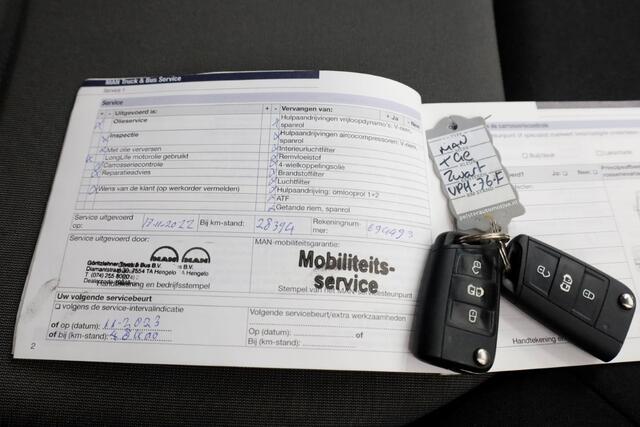 MAN Truck & Bus Service
Service 1
Service
+ - Uitgevoerd is:
Olieservice
Inspectie
Met olie verversen
LongLife motorolie gebruikt
Carrosseriecontrole
Reparatieadvies
Wens van de klant (op werkorder vermelden)
+ - Vervangen van:
+ Ja / - Nee
Hulpaandrijvingen vrijloopdynamo's: V-riem,
spanrol
Hulpaandrijvingen aircocompressoren: V-riem,
spanrol
Interieurluchtfilter
Remvloeistof
4-wielkoppelingsolie
Brandstoffilter
Luchtfilter
Hulpaandrijving: omlooprol 1+2
ATF
Getande riem, spanrol
Service uitgevoerd
op: 17-11-2022
Bij km-stand: 28394
Rekeningnum-
mer:
Service uitgevoerd door:
MAN MAN
Görtzlehner Truck & Bus B.V.
Diamantstraat 7554 TA Hengelo
T (074) 255 8000
Handtekening en bedrijfsstempel
MAN-mobiliteitsgarantie:
Mobiliteits-
service
Stempel van het MAN-servicesteunpunt
Uw volgende servicebeurt
volgens de service-intervalindicatie
of op (datum): 11-2023
of bij (km-stand):
Volgende servicebeurt/extra werkzaamheden
Op (datum):
Bij (km-stand):
2
MAN
TGE
Zwart
VPH-76-F
Handtekening en